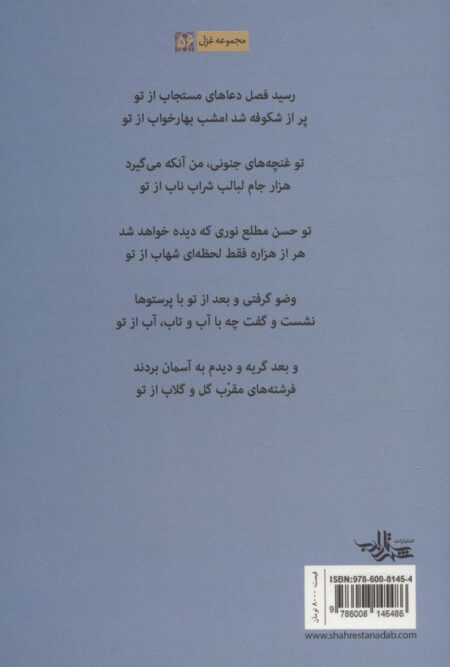 مجموعه غزل
رسید فصل دعاهای مستجاب از تو
پر از شکوفه شد امشب بهارخواب از تو
تو غنچه‌های جنونی، من آنکه می‌گیرد
هزار جام لبالب شراب ناب از تو
تو حسن مطلع نوری که دیده خواهد شد
هر از هزاره فقط لحظه‌ای شهاب از تو
وضو گرفتی و بعد از تو با پرستوها
نشست و گفت چه با آب و تاب، آب از تو
و بعد گریه و دیدم به آسمان بردند
فرشته‌های مقرّب گل و گلاب از تو
انتشارات
شهرستان ادب
ISBN:978-600-8145-4
9 786008 145486
قیمت: ۸۰۰۰ تومان
www.shahrestanadab.com